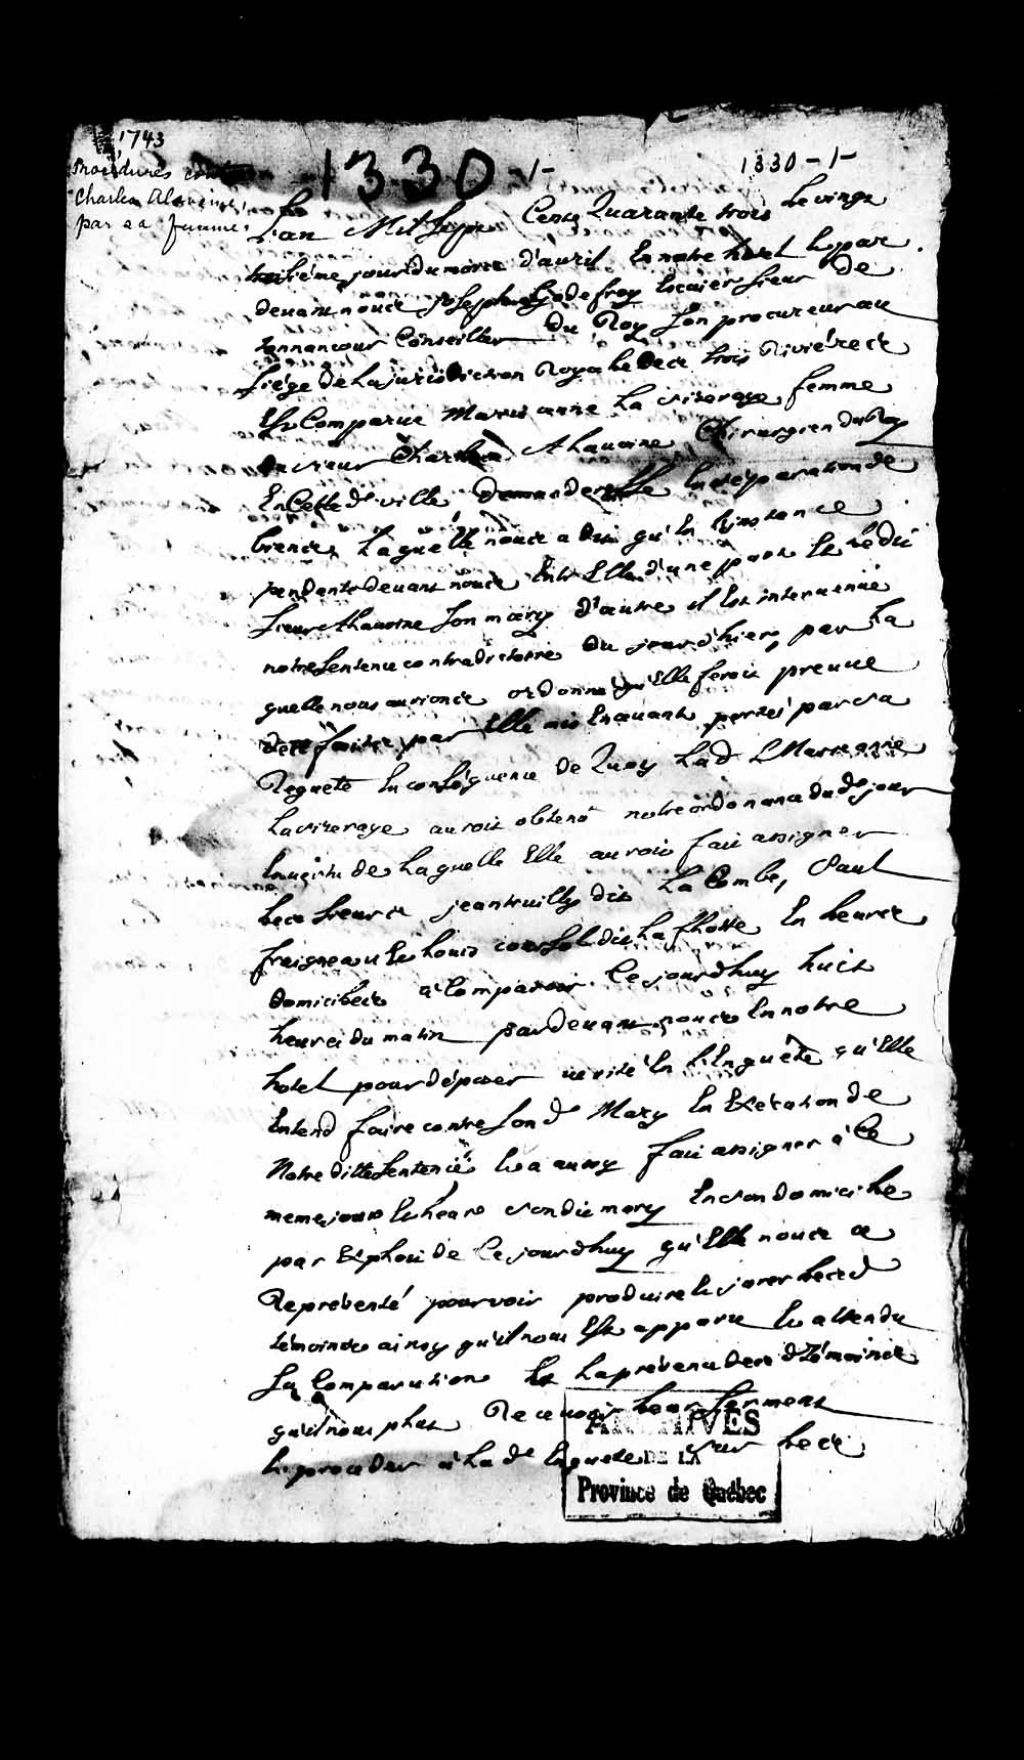 1743
Procédures contre
Charles Alavoine,
par sa femme.
1330 -1-
1330-1-
L'an Mil Sept Cens Quarante trois Le vingt
troisiéme jour du mois d'avril En notre hotel Et par
devant nous Joseph Godefroy Ecuier Sieur de
tonnancour Conseiller Du Roy Son procureur au
Siége De La jurisdiction Royalle Des trois Riviéres
Est Comparue Marie anne La viseraye femme
du sieur Charles Alavoine Chirurgien du Roy
En Cette de ville Demanderesse En séparation de
biens, Laquelle nous a dit qu'En L'instance
pendante devant nous Entre Elle d'une part Et Ledit
Sieur Alavoine Son mary d'autre il Est intervenue
notre Sentence contradictoire du jour d'hier, par La
quelle nous aurions ordonné qu'Elle feroit preuve
des faits par Elle mis En avant portés par sa
Requete En conséquence de Quoy Lad Marie anne
Laviseraye auroit obtenû notre ordonance dud jour
En vertu de Laquelle Elle auroit fait assigner
Les Sieurs jean druilly dit La Combe, Paul
fraigneau Et Louis coursol dit Lafflotte En Leurs
domicilles a Comparoir Cejourdhuy huit
heures du matin pardevant nous En notre
hotel pour déposer verité En L'Enquête qu'Elle
Entend faire contre Sond Mary En Exécution de
Notre ditte Sentence Et a aussy fait assigner à Ce
meme jour Et heure sondit mary En son domicille
par Exploit de Cejourdhuy qu'Elle nous a
Représenté pour voir produire Et jurer Lesd
témoins ainsy qu'il nous Est apparu Et attendu
La Comparution Et La présence desd témoins
qu'il nous plut Recevoir Leur Serment
Et proceder à Lad Enquete Sur Les
ARCHIVES
DE LA
Province de Québec